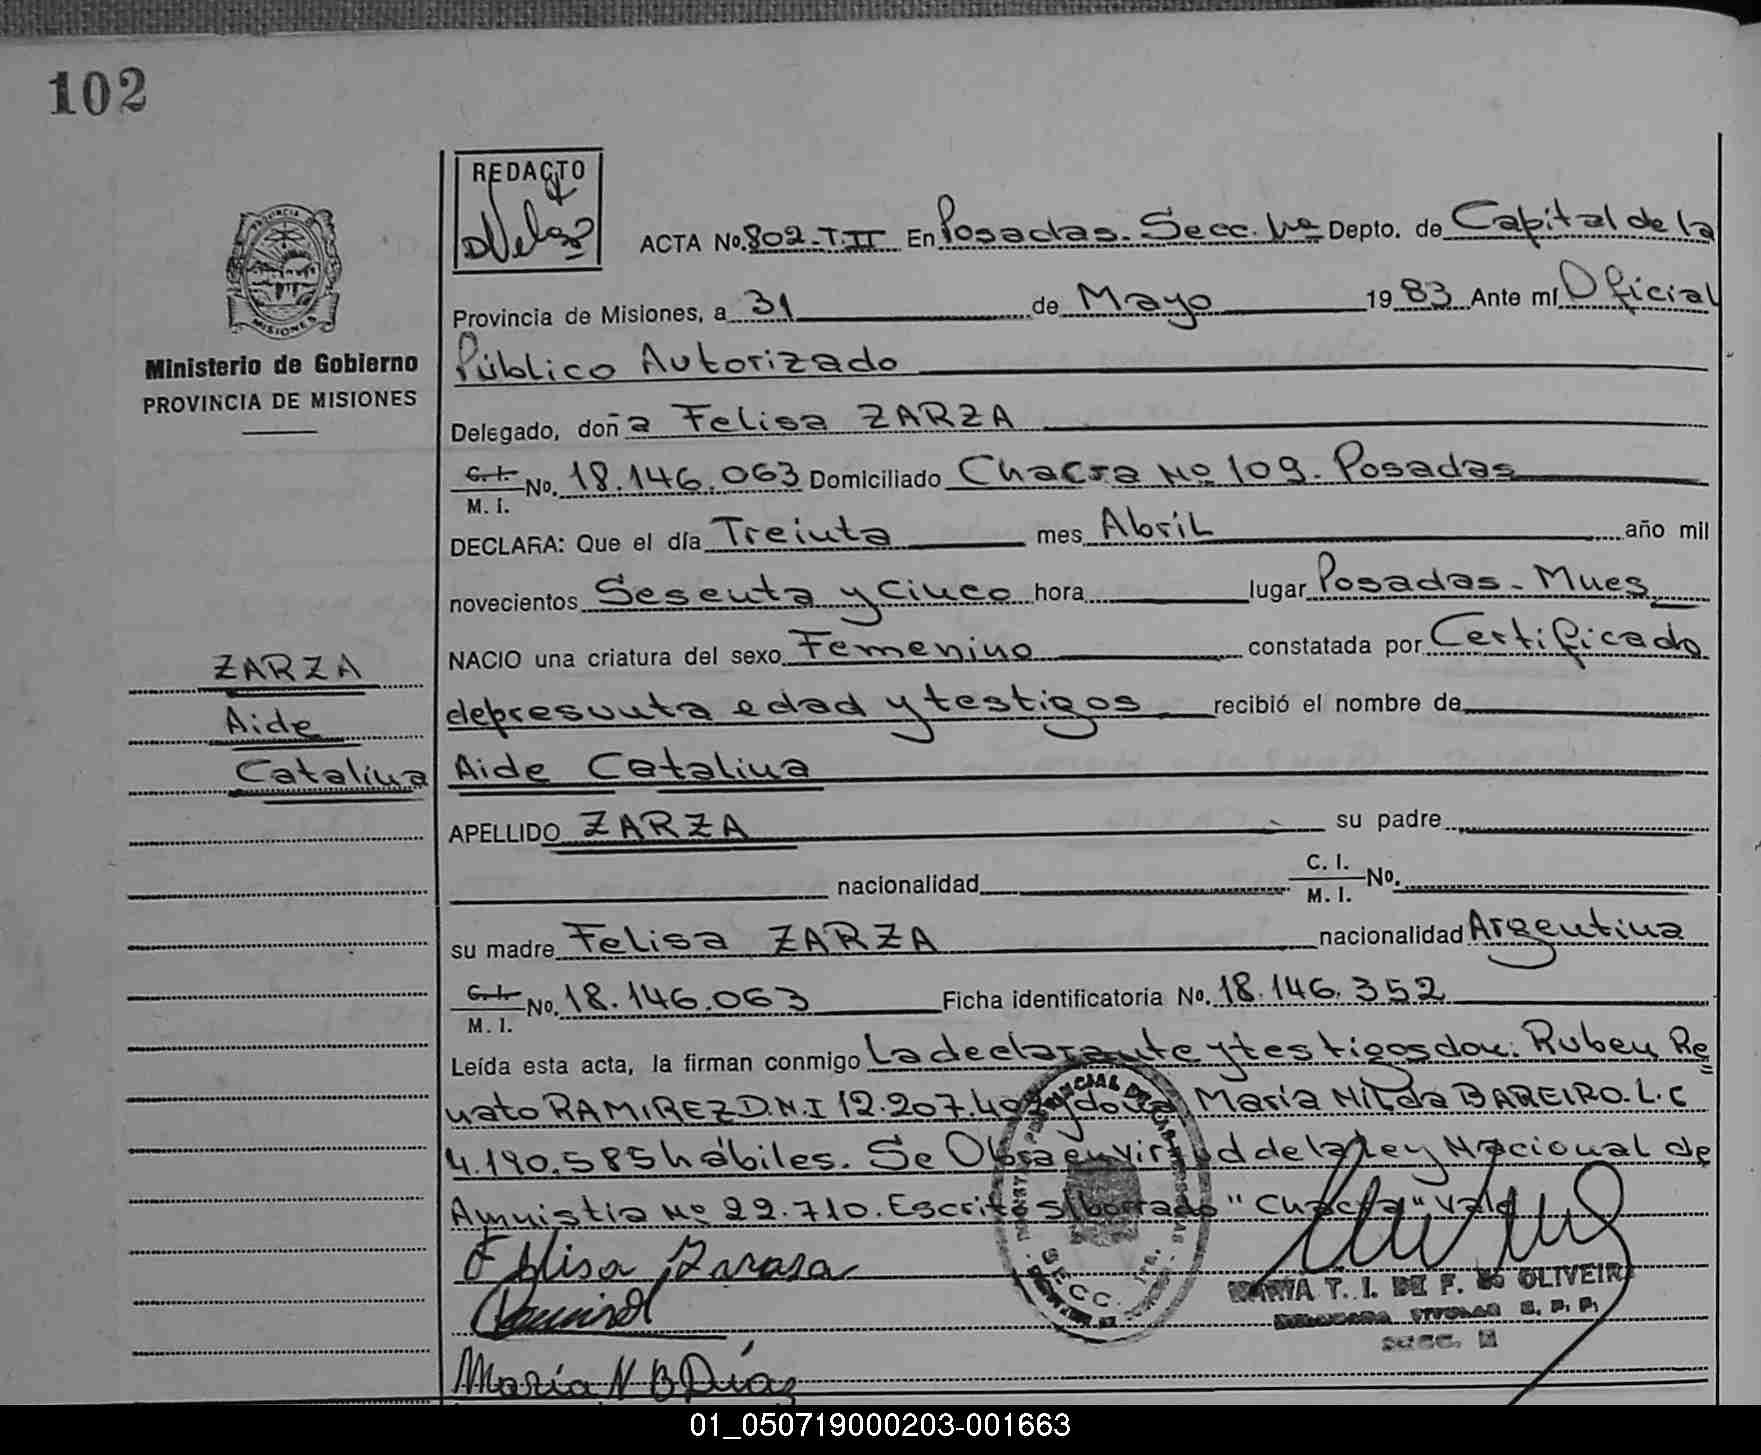 102
REDACTO
PROVINCIA DE MISIONES
Ministerio de Gobierno
PROVINCIA DE MISIONES
ACTA No. 802-T.II En Posadas. Secc. 1ra Depto. de Capital de la
Provincia de Misiones, a 31 de Mayo 19 83 Ante mí Oficial
Público Autorizado
Delegado, doña Felisa ZARZA
C.I. M.I. No. 18.146.063 Domiciliado Chacra No 109. Posadas
DECLARA: Que el día Treinta mes Abril año mil
novecientos Sesenta y Cinco hora lugar Posadas - Mnes
NACIO una criatura del sexo Femenino constatada por Certificado
de presunta edad y testigos recibió el nombre de
Aide Catalina
APELLIDO ZARZA su padre
nacionalidad C. I. M. I. No.
su madre Felisa ZARZA nacionalidad Argentina
C.I. M.I. No. 18.146.063 Ficha identificatoria No. 18.146.352
Leída esta acta, la firman conmigo La declarante y testigos don: Ruben Re
nato RAMIREZ D.N.I 12.207.40 y doña Maria Nilda BAREIRO. L.C
4.190.585 hábiles. Se Obra en virtud de la ley Nacional de
Amnistia No 22.710. Escrito s/borrado "Chacra" Vale
ZARZA
Aide
Catalina
Felisa Zarza
Maria N B Diaz
SECC.
MARIA T. I. DE F. DE OLIVEIRA
TITULAR
SECC.
01_050719000203-001663